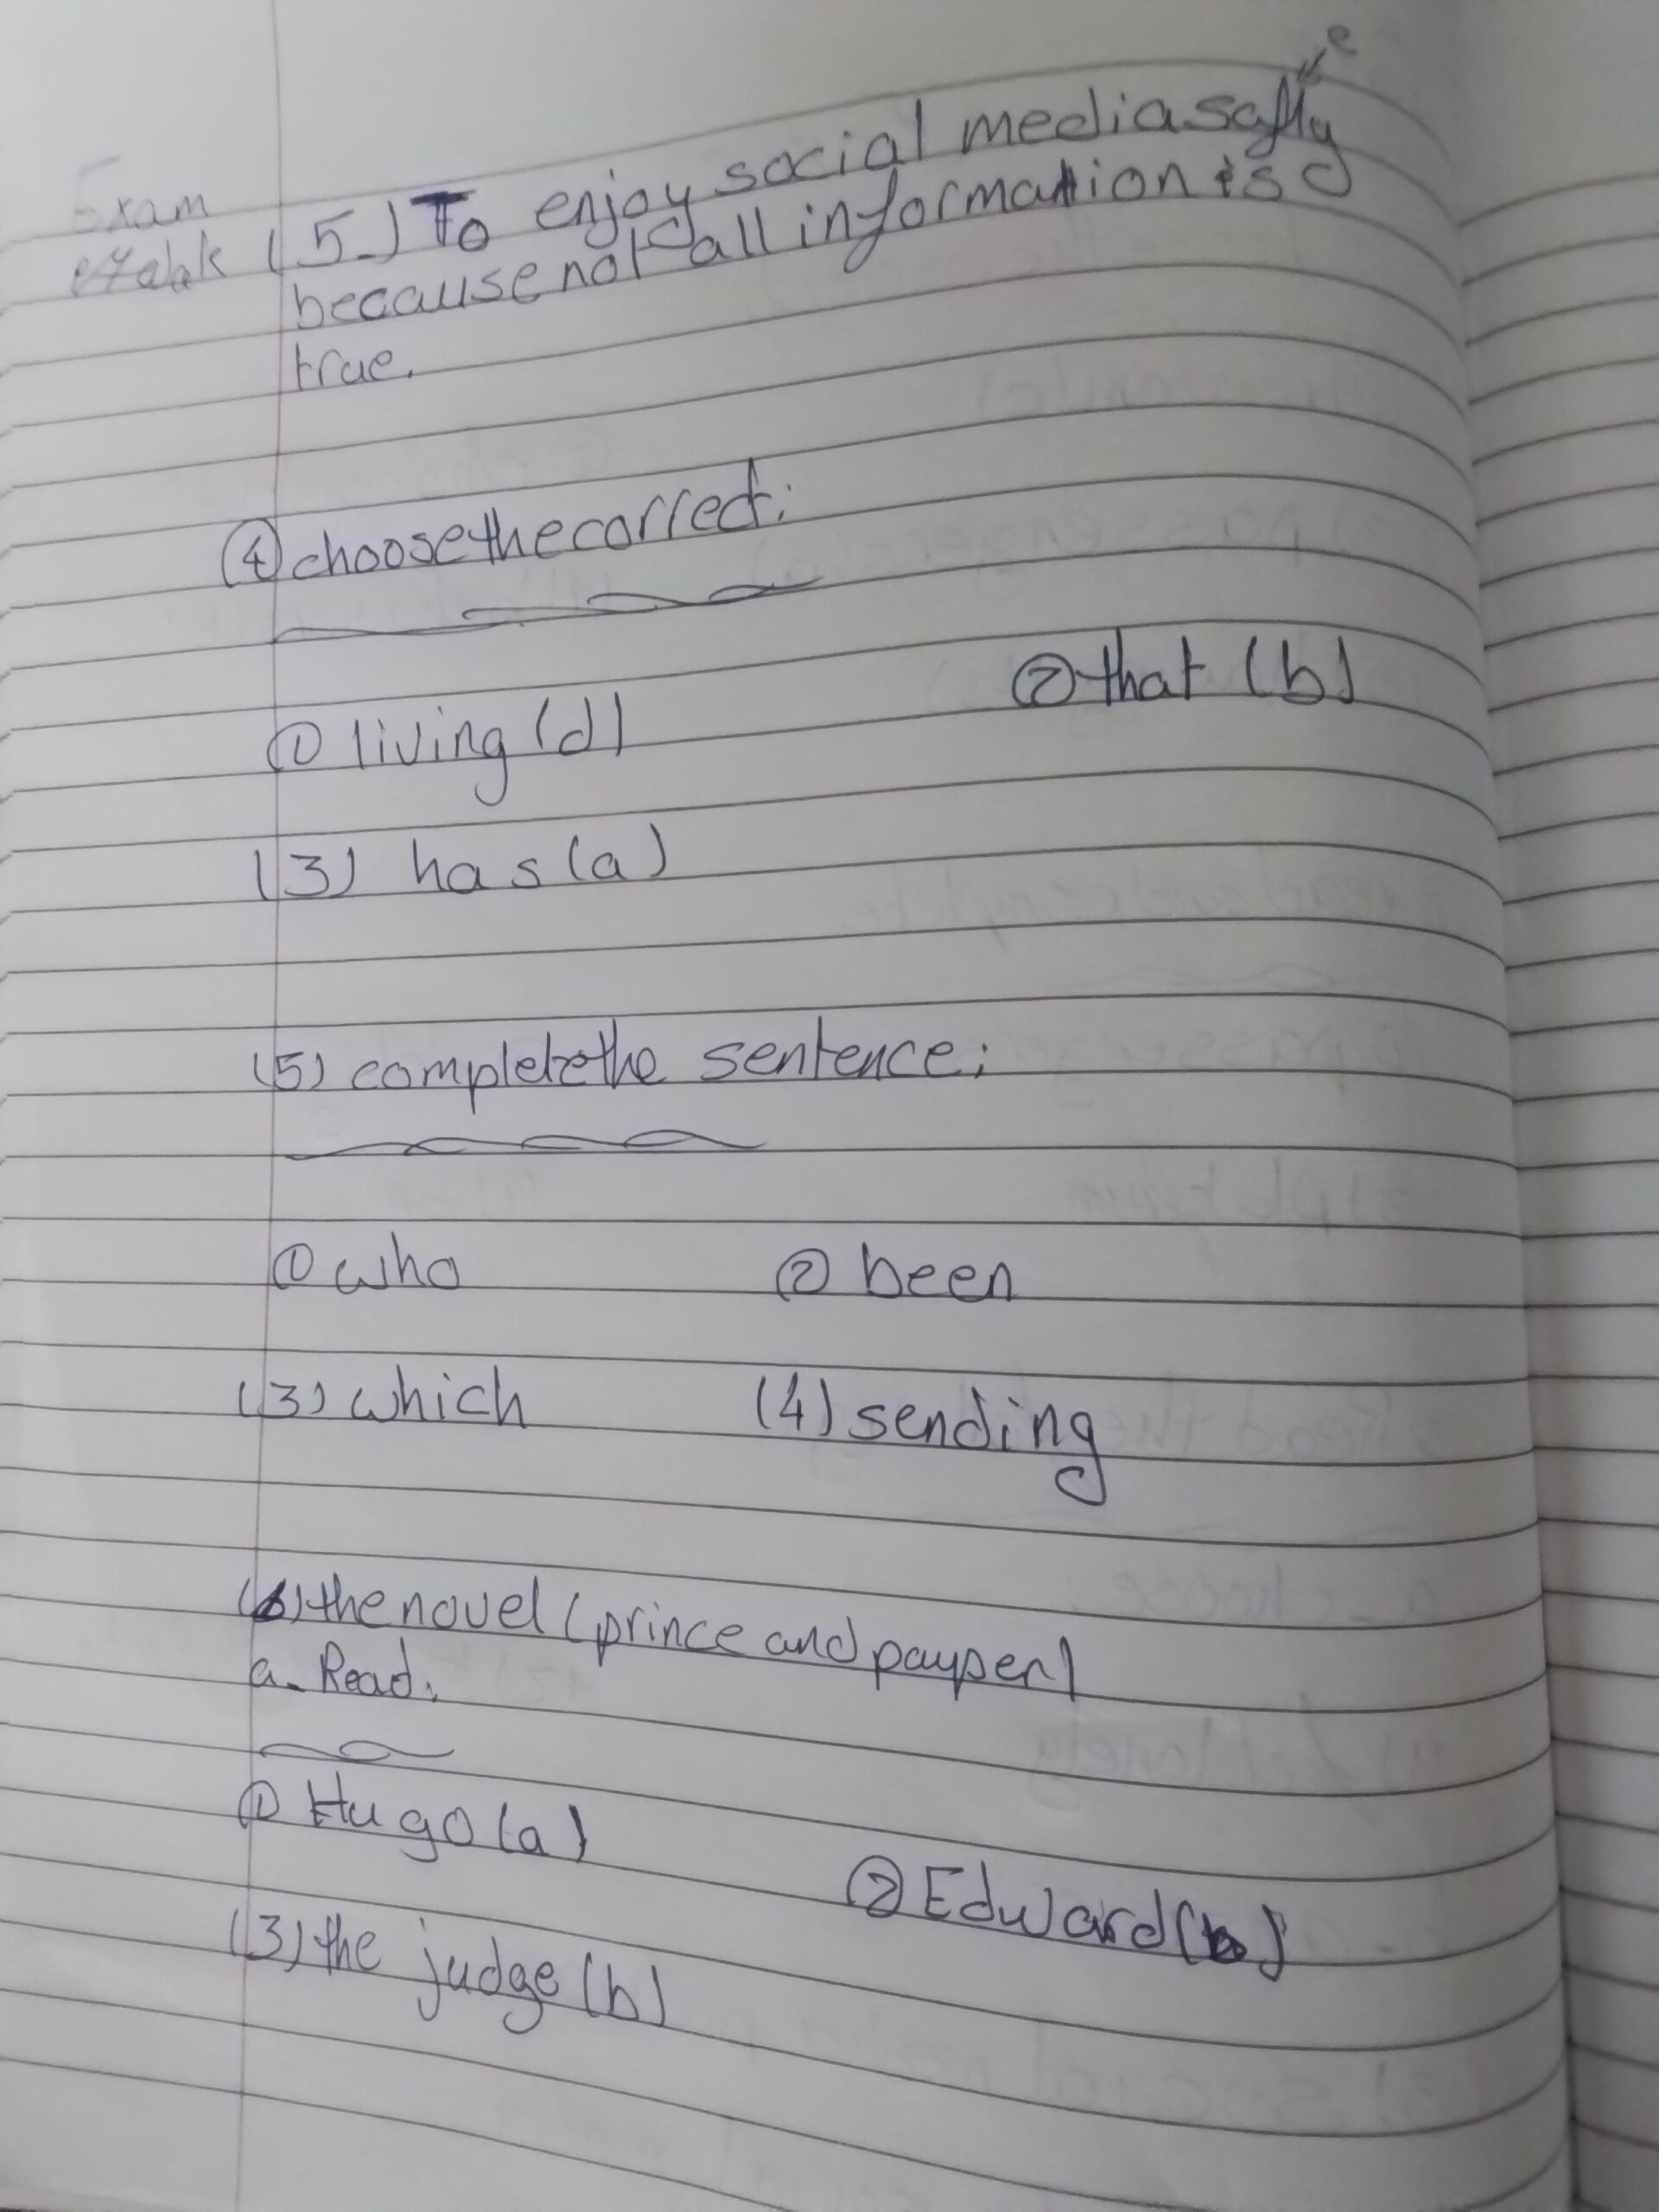 e
(5-) To enjoy social media safly
because not all information is
true.
Exam
④ choose the correct:
① living (d)
② that (b)
(3) has (a)
(5) complete the sentence:
① who
② been
(3) which
(4) sending
(6) the novel (prince and payper)
a- Read:
① Hugo (a)
② Edward (b)
(3) the judge (b)